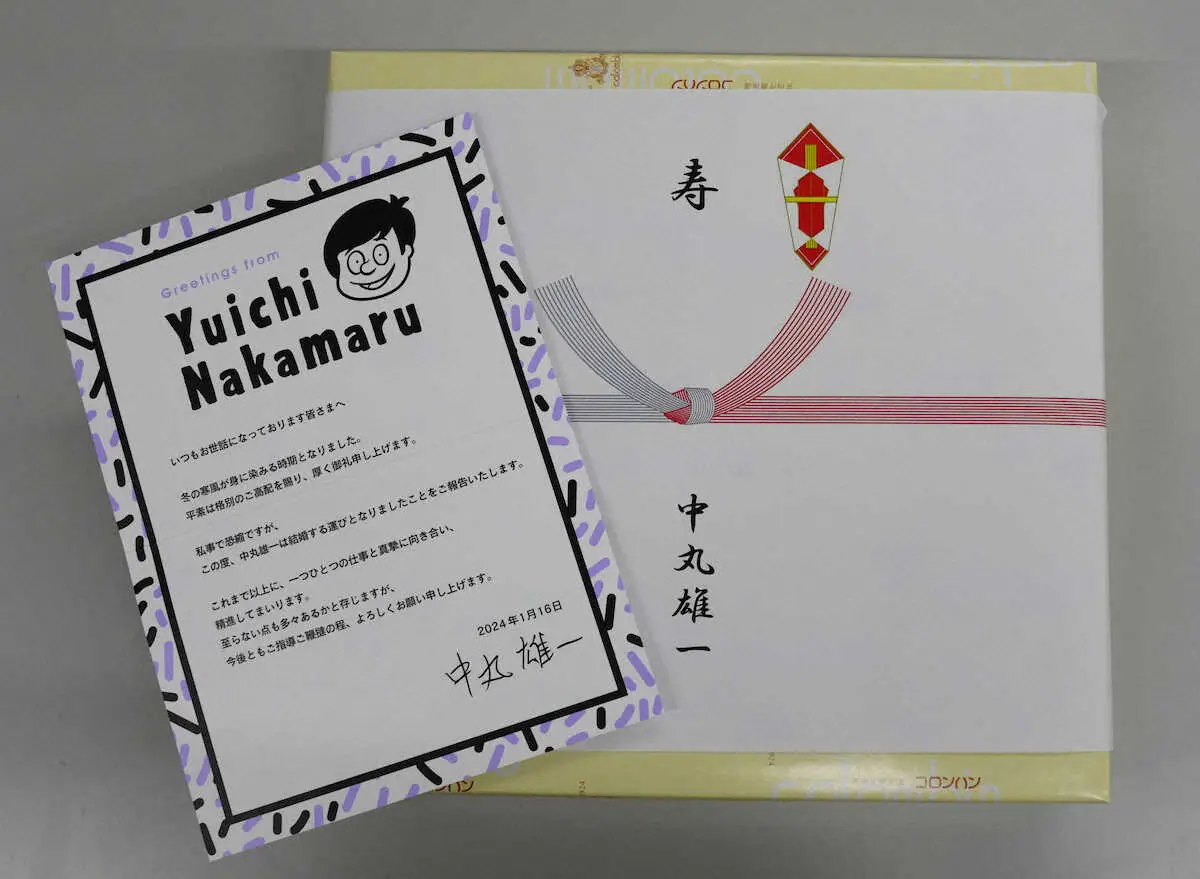 Greetings from
Yuichi
Nakamaru
いつもお世話になっております皆さまへ
冬の寒風が身に染みる時期となりました。
平素は格別のご高配を賜り、厚く御礼申し上げます。
私事で恐縮ですが、
この度、中丸雄一は結婚する運びとなりましたことをご報告いたします。
これまで以上に、一つひとつの仕事と真摯に向き合い、
精進してまいります。
至らない点も多々あるかと存じますが、
今後ともご指導ご鞭撻の程、よろしくお願い申し上げます。
2024年1月16日
中丸雄一
寿
中丸雄一
コロンバン